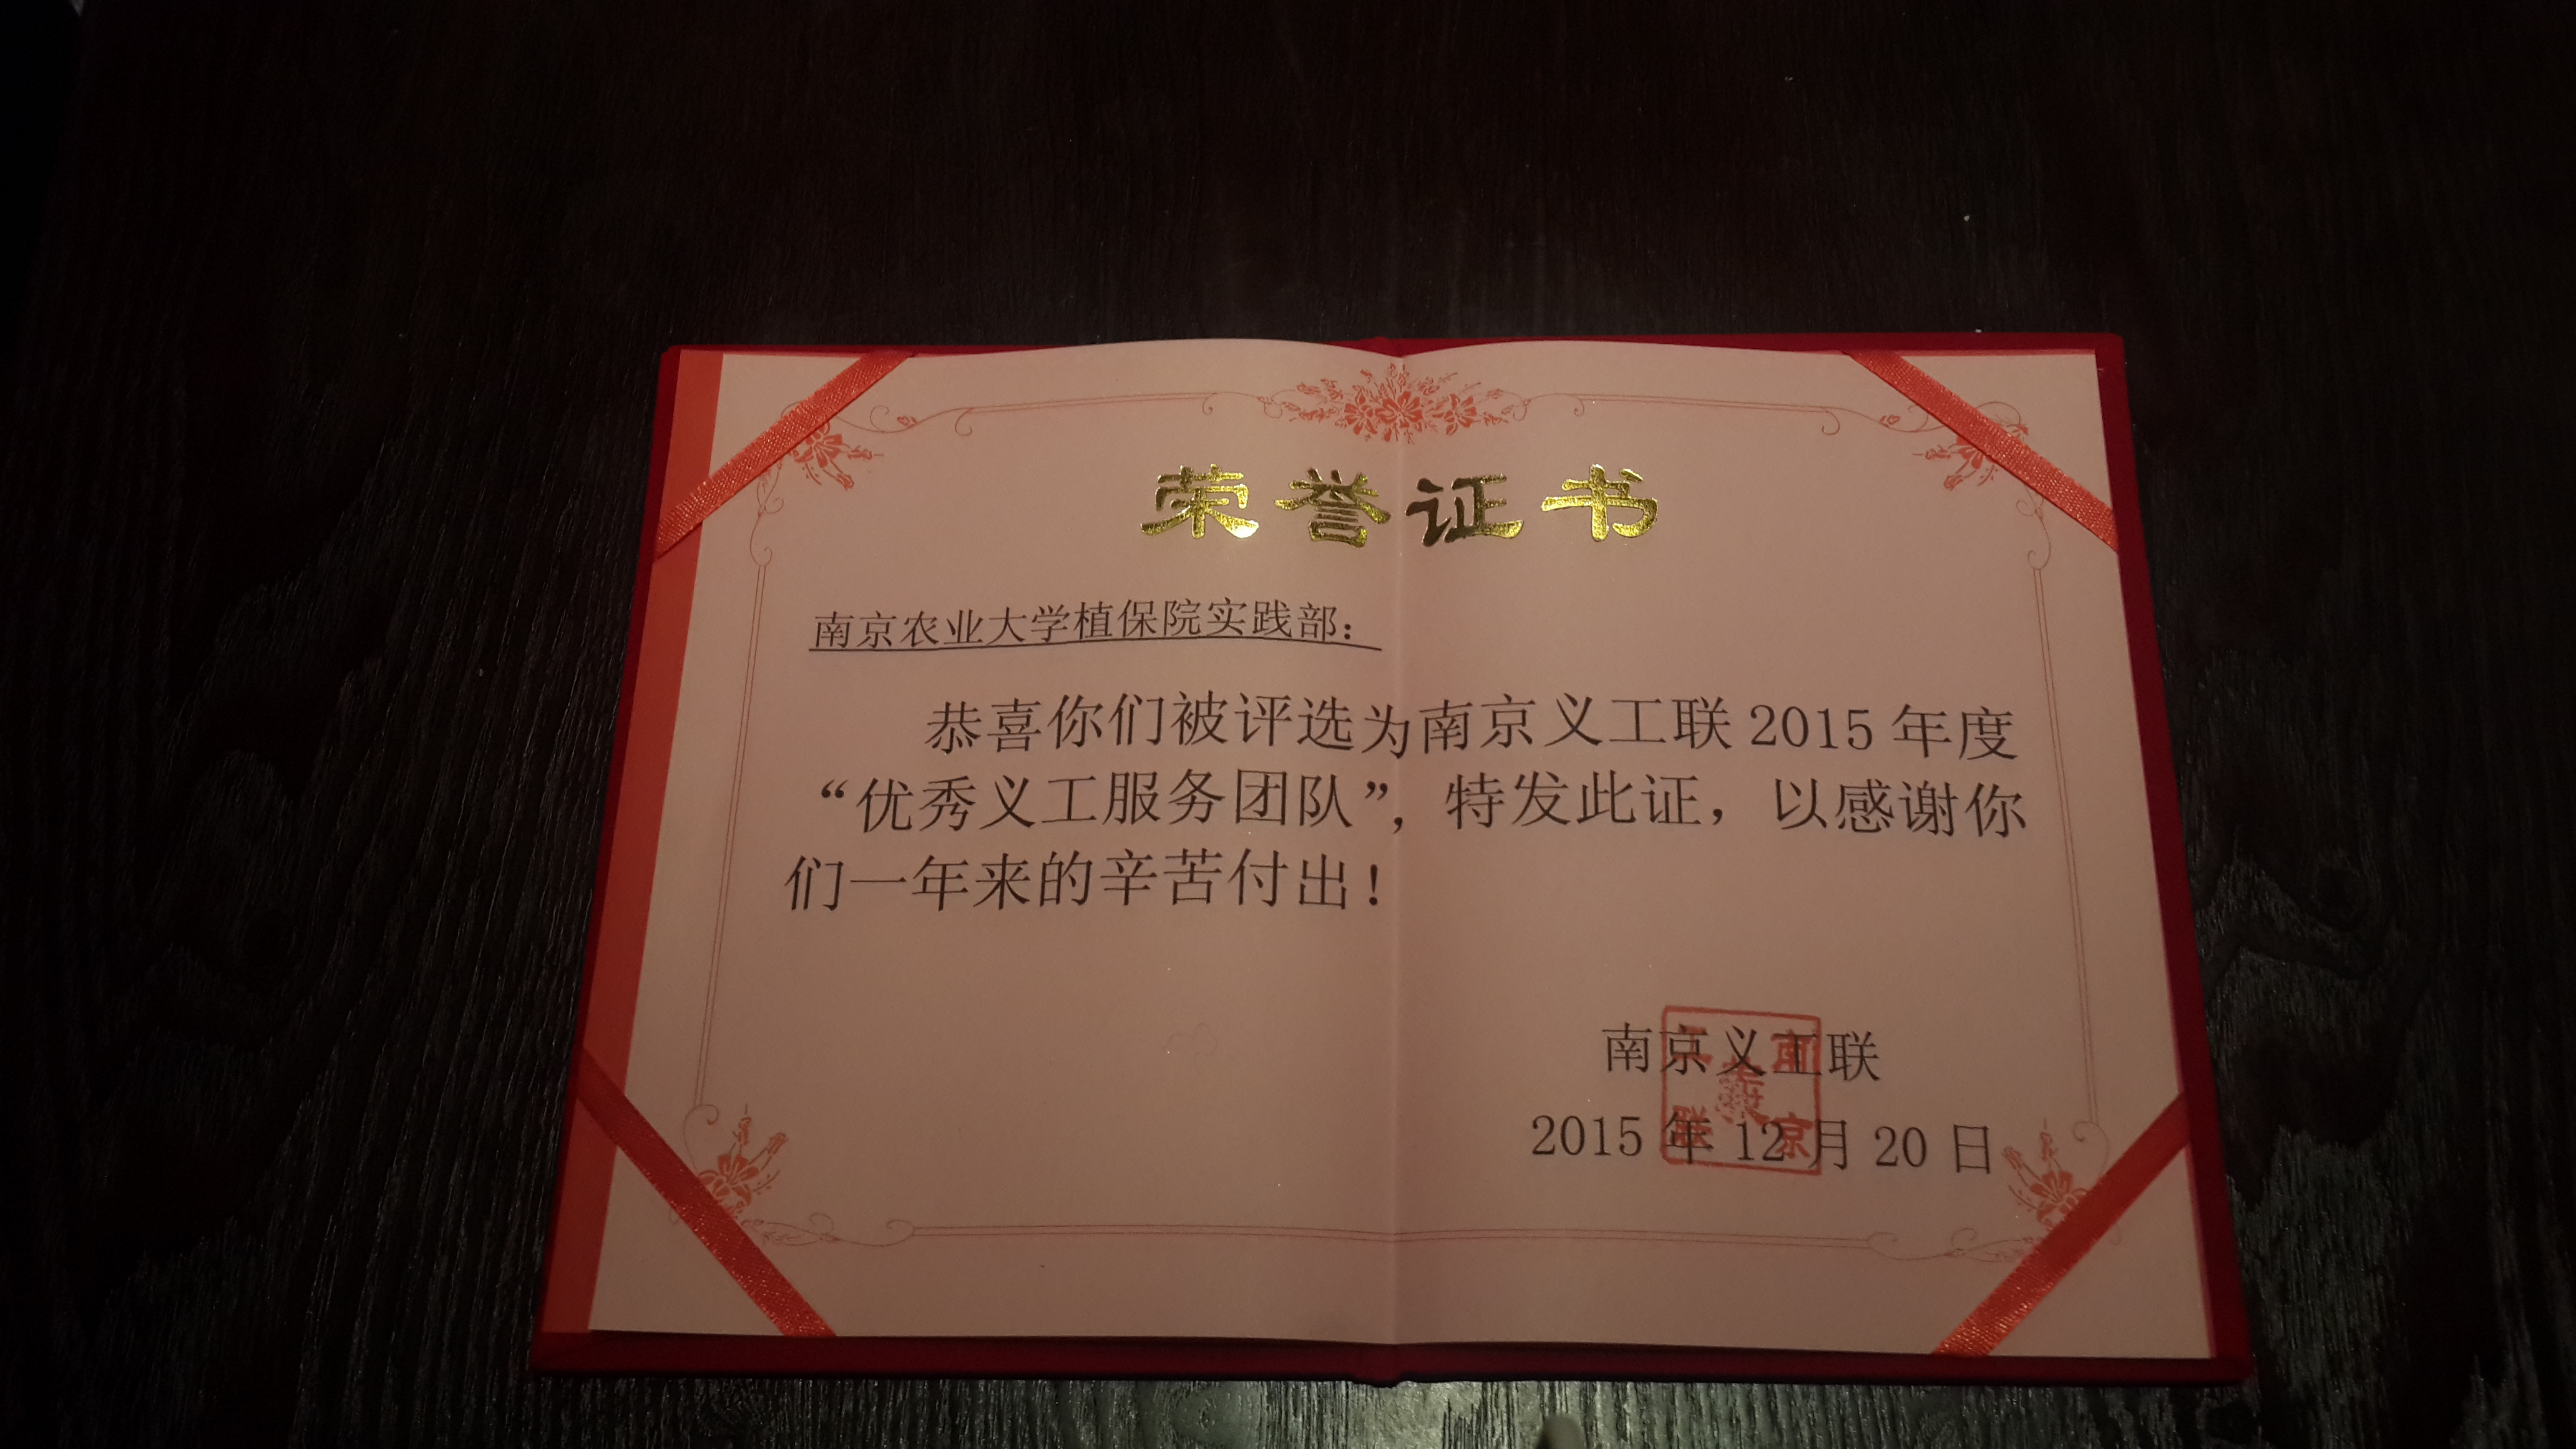 荣誉证书
南京农业大学植保院实践部：
恭喜你们被评选为南京义工联 2015 年度
“优秀义工服务团队”，特发此证，以感谢你
们一年来的辛苦付出！
南京义工联
2015 年 12 月 20 日